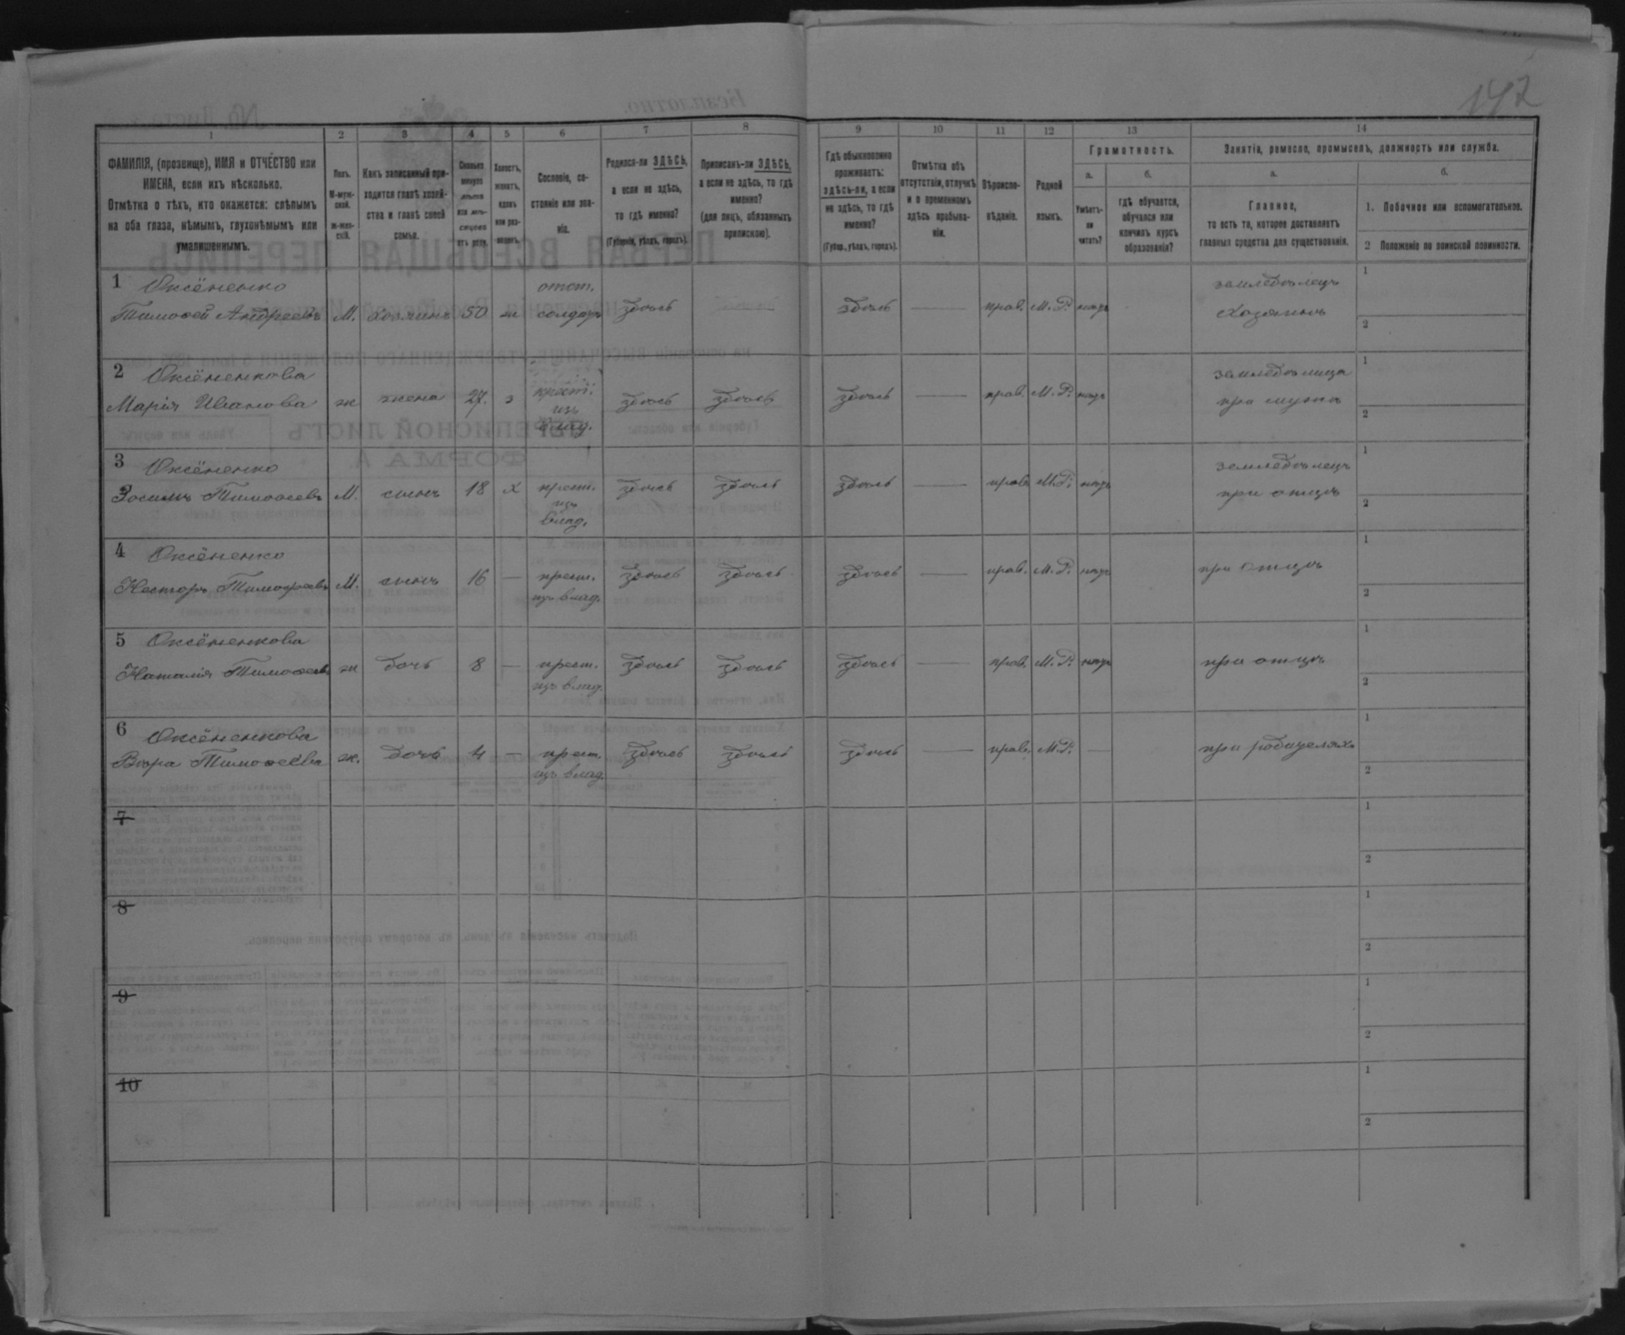 142
1 2 3 4 5 6 7 8 9 10 11 12 13 14
ФАМИЛІЯ, (прозвище), ИМЯ и ОТЧЕСТВО или
ИМЕНА, если ихъ нѣсколько.
Отмѣтка о тѣхъ, кто окажется: слѣпымъ
на оба глаза, нѣмымъ, глухонѣмымъ или
умалишеннымъ.
Полъ.
М-муж-
ской.
ж-жен-
скій.
Какъ записанный при-
ходится главѣ хозяй-
ства и главѣ своей
семьи.
Сколько
минуло
лѣтъ
или мѣ-
сяцевъ
отъ роду.
Холостъ,
женатъ,
вдовъ
или раз-
веденъ.
Сословіе, со-
стояніе или зва-
ніе.
Родился-ли ЗДѢСЬ,
а если не здѣсь,
то гдѣ именно?
(Губернія, уѣздъ, городъ).
Приписанъ-ли ЗДѢСЬ,
а если не здѣсь, то гдѣ
именно?
(для лицъ, обязанныхъ
припискою).
Гдѣ обыкновенно
проживаетъ:
здѣсь-ли, а если
не здѣсь, то гдѣ
именно?
(Губер., уѣздъ, городъ).
Отмѣтка объ
отсутствіи, отлучкѣ
и о временномъ
здѣсь пребыва-
ніи.
Вѣроиспо-
вѣданіе.
Родной
языкъ.
Грамотность.
а. б.
Умѣетъ-
ли
читать?
гдѣ обучается,
обучался или
кончилъ курсъ
образованія?
Занятія, ремесло, промыселъ, должность или служба.
а. б.
Главное,
то есть то, которое доставляетъ
главныя средства для существованія.
1. Побочное или вспомогательное.
2 Положеніе по воинской повинности.
1 Оксёненко отст. земледѣлецъ 1
Тимофей Андреевъ М. хозяинъ 50 ж солдатъ здѣсь — здѣсь — прав. М.Р. нѣтъ Хозяинъ 2
2 Оксёненкова крест. земледѣлица 1
Марія Иванова ж жена 27. з изъ влад. здѣсь здѣсь здѣсь — прав. М.Р. нѣтъ при мужѣ 2
3 Оксёненко земледѣлецъ 1
Зосимъ Тимофеевъ М. сынъ 18 х крест. изъ влад. здѣсь здѣсь здѣсь прав. М.Р. нѣтъ при отцѣ 2
4 Оксёненко 1
Несторъ Тимофеевъ М. сынъ 16 — крест. изъ влад. здѣсь здѣсь здѣсь — прав. М.Р. нѣтъ при отцѣ 2
5 Оксёненкова 1
Наталія Тимофеева ж дочь 8 — крест. изъ влад. здѣсь здѣсь здѣсь — прав. М.Р. нѣтъ при отцѣ 2
6 Оксёненкова 1
Вѣра Тимофеева ж. дочь 4 — крест. изъ влад. здѣсь здѣсь здѣсь — прав. М.Р. — при родителяхъ 2
7 1
2
8 1
2
9 1
2
10 1
2